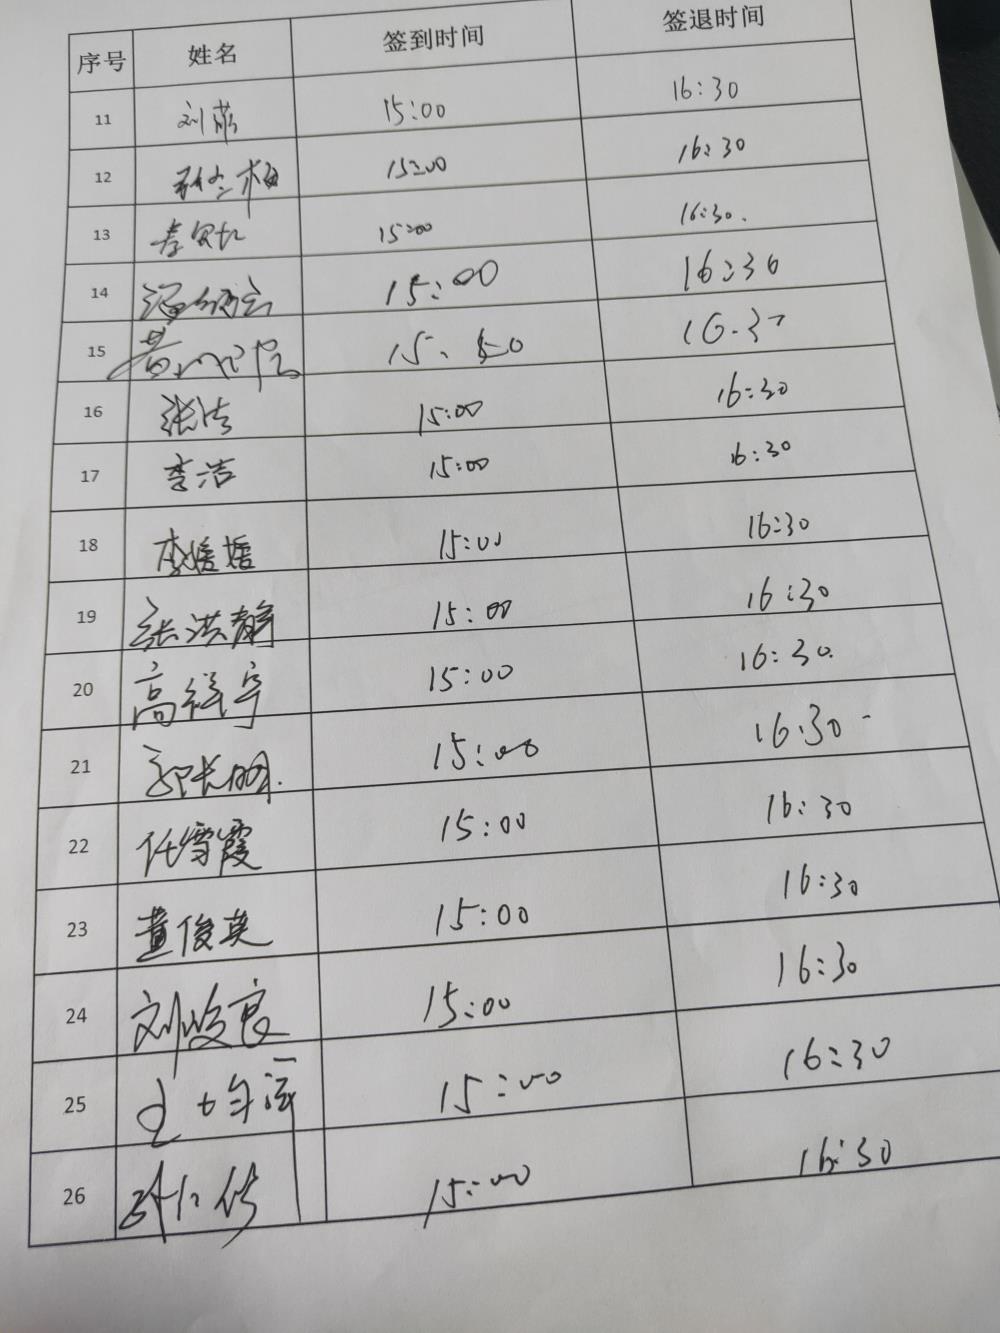 序号 姓名 签到时间 签退时间
11 刘 15:00 16:30
12 梅 15:00 16:30
13 李 15:00 16:30.
14 15:00 16:30
15 黄 15.
16 张洁 15:00 16:30
17 李洁 15:00 16:30
18 李媛媛 15:00 16:30
19 张洪静 15:00 16:30
20 高祥宇 15:00 16:30.
21 郭长明. 15:00 16:30
22 任雪霞 15:00 16:30
23 董俊英 15:00 16:30
24 刘俊良 15:00 16:30
25 王 15:00 16:30
26 15:00 16:30